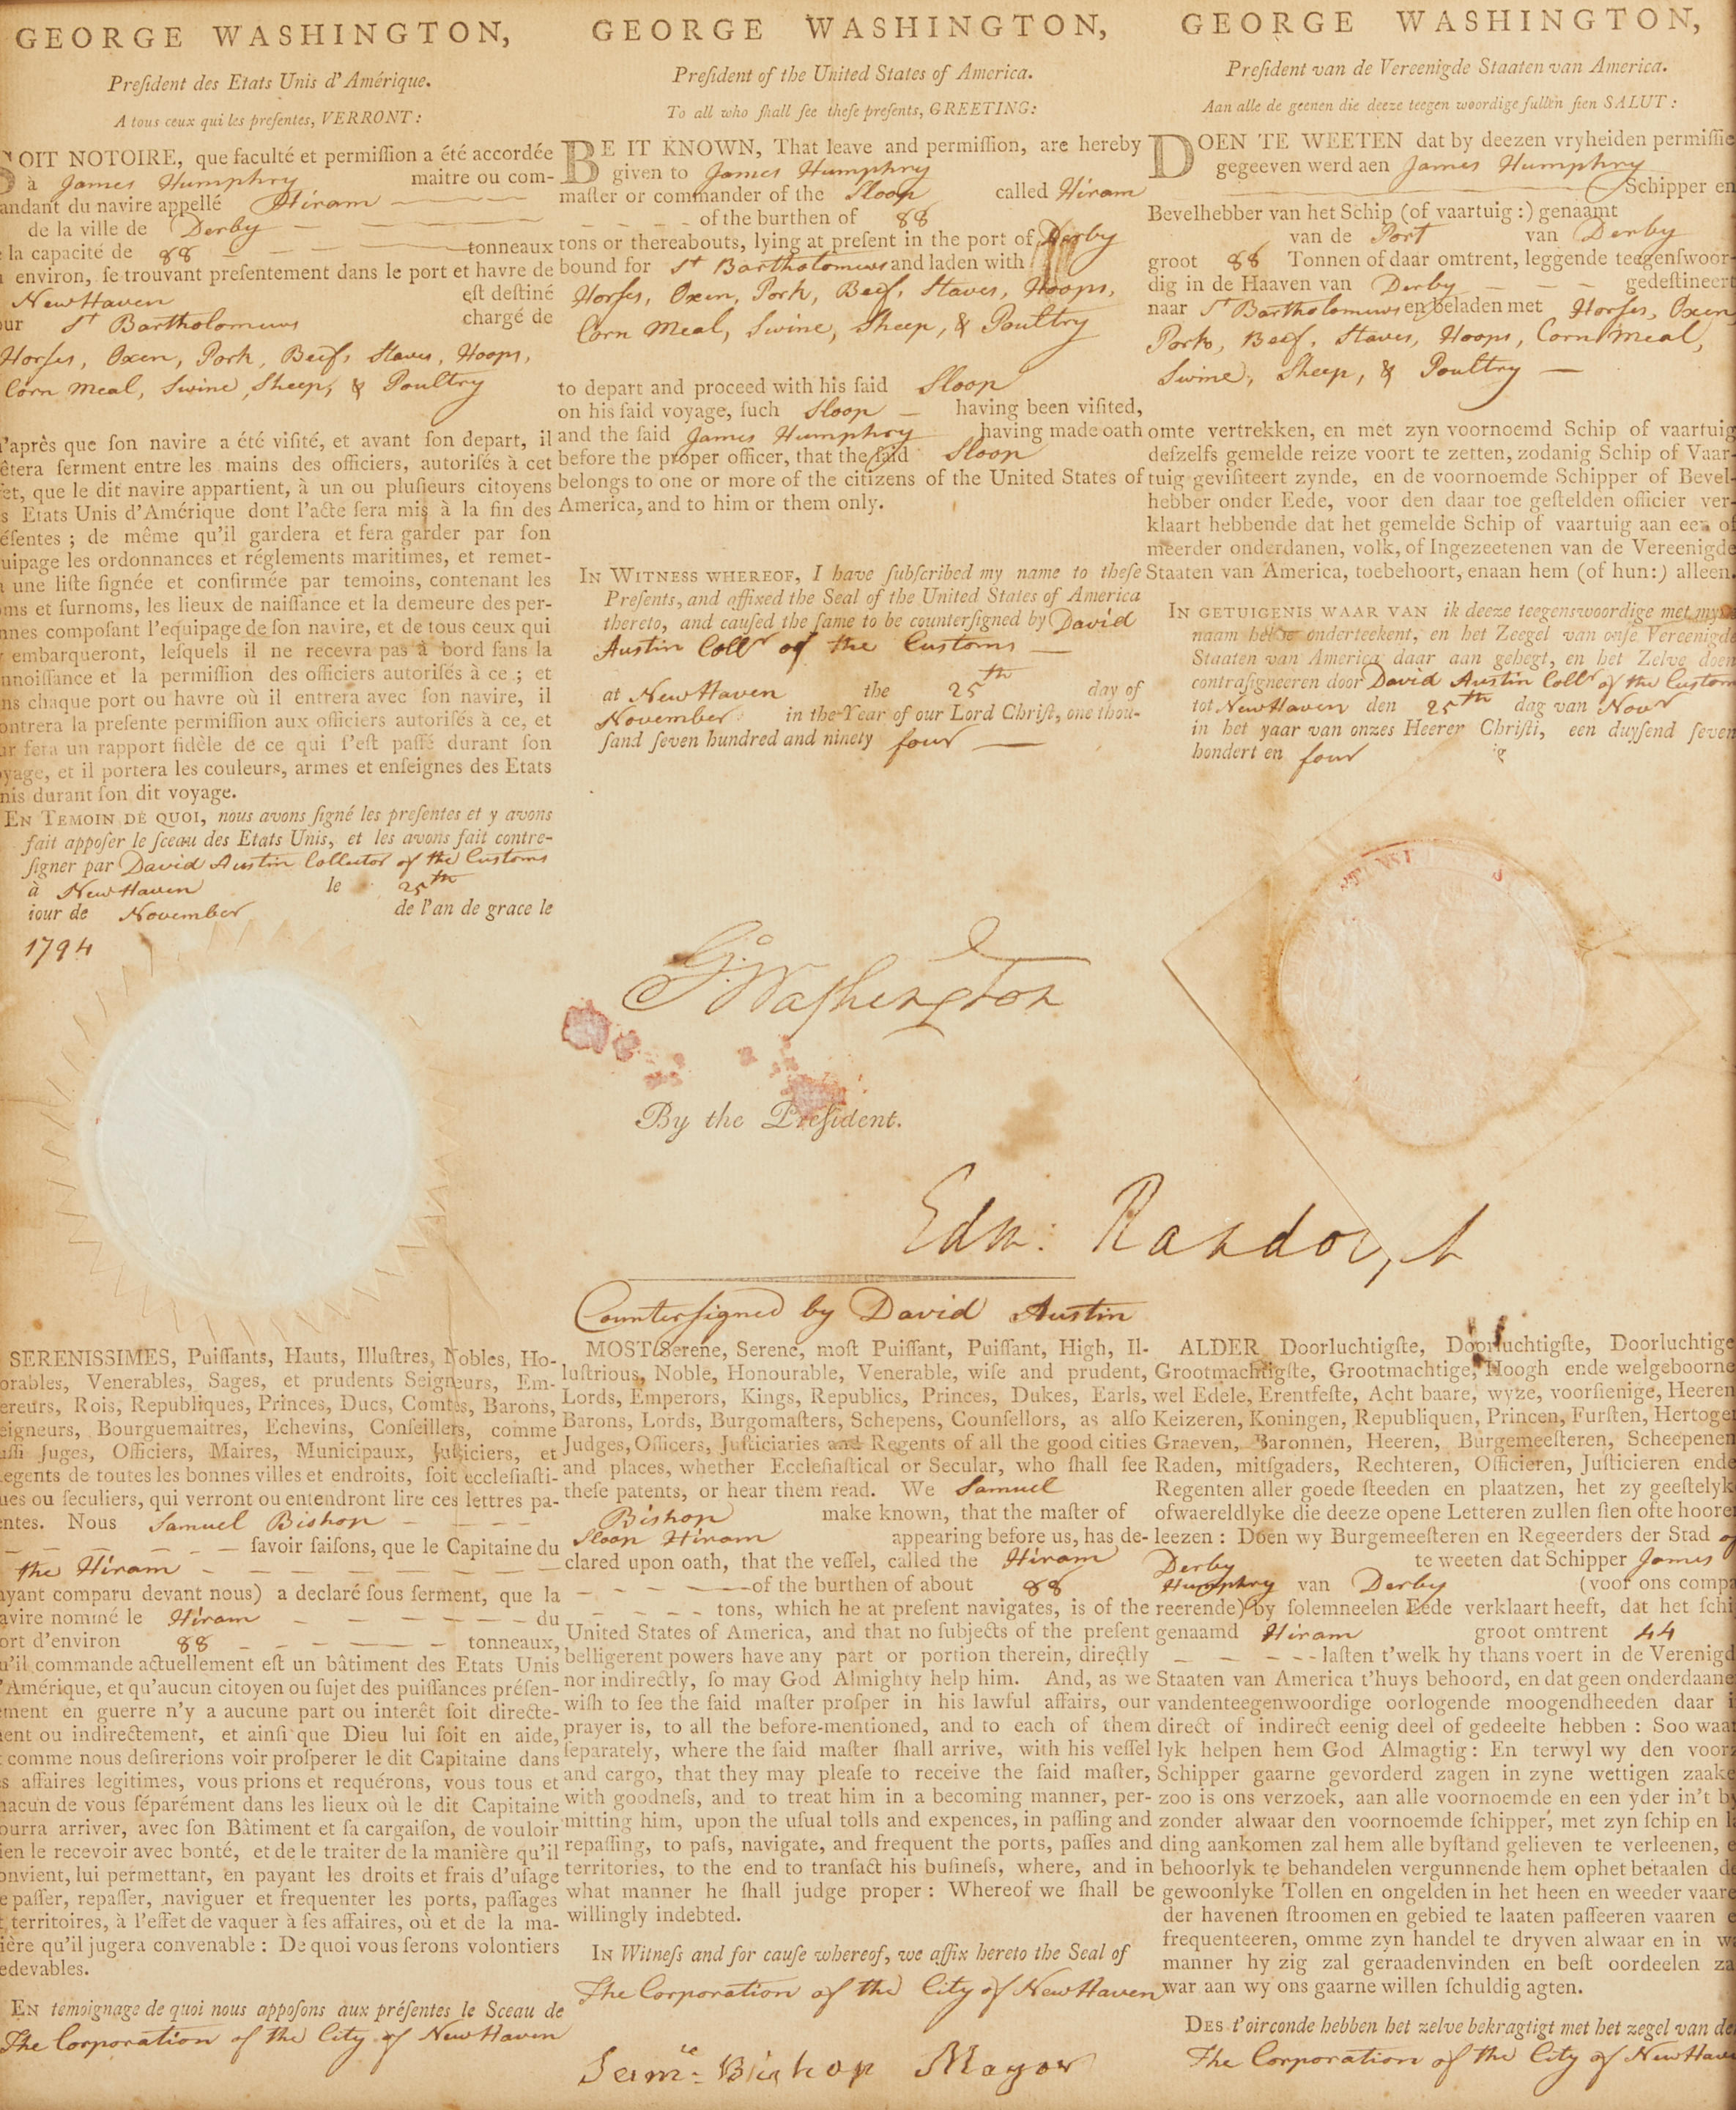 GEORGE WASHINGTON,
President des Etats Unis d'Amérique.
A tous ceux qui les presentes, VERRONT:
SOIT NOTOIRE, que faculté et permission a été accordée
à James Humphry maitre ou com-
andant du navire appellé Hiram
de la ville de Derby
la capacité de 88 tonneaux
environ, se trouvant presentement dans le port et havre de
New Haven est destiné
our St Bartholomews chargé de
Horses, Oxen, Pork, Beef, Staves, Hoops,
Corn Meal, Swine, Sheep, & Poultry
'après que son navire a été visité, et avant son depart, il
êtera serment entre les mains des officiers, autorisés à cet
et, que le dit navire appartient, à un ou plusieurs citoyens
s Etats Unis d'Amérique dont l'acte sera mis à la fin des
ésentes; de même qu'il gardera et fera garder par son
uipage les ordonnances et réglements maritimes, et remet-
a une liste signée et confirmée par temoins, contenant les
oms et surnoms, les lieux de naissance et la demeure des per-
nnes composant l'equipage de son navire, et de tous ceux qui
y embarqueront, lesquels il ne recevra pas à bord sans la
nnoissance et la permission des officiers autorisés à ce; et
ns chaque port ou havre où il entrera avec son navire, il
ontrera la presente permission aux officiers autorisés à ce, et
ur fera un rapport fidèle de ce qui s'est passé durant son
oyage, et il portera les couleurs, armes et enseignes des Etats
nis durant son dit voyage.
EN TEMOIN DE QUOI, nous avons signé les presentes et y avons
fait apposer le sceau des Etats Unis, et les avons fait contre-
signer par David Austin Collector of the Customs
à New Haven le 25th
iour de November de l'an de grace le
1794
GEORGE WASHINGTON,
President of the United States of America.
To all who shall see these presents, GREETING:
BE IT KNOWN, That leave and permission, are hereby
given to James Humphry
master or commander of the Sloop called Hiram
of the burthen of 88
tons or thereabouts, lying at present in the port of Derby
bound for St Bartholomews and laden with
Horses, Oxen, Pork, Beef, Staves, Hoops,
Corn Meal, Swine, Sheep, & Poultry
to depart and proceed with his said Sloop
on his said voyage, such Sloop having been visited,
and the said James Humphry having made oath
before the proper officer, that the said Sloop
belongs to one or more of the citizens of the United States of
America, and to him or them only.
IN WITNESS WHEREOF, I have subscribed my name to these
Presents, and affixed the Seal of the United States of America
thereto, and caused the same to be countersigned by David
Austin Collr of the Customs
at New Haven the 25th day of
November in the Year of our Lord Christ, one thou-
sand seven hundred and ninety four
GEORGE WASHINGTON,
President van de Vereenigde Staaten van America.
Aan alle de geenen die deeze teegen woordige sullen sien SALUT:
DOEN TE WEETEN dat by deezen vryheiden permissie
gegeeven werd aen James Humphry
Schipper en
Bevelhebber van het Schip (of vaartuig:) genaamt
van de Port van Derby
groot 88 Tonnen of daar omtrent, leggende teegenswoor-
dig in de Haaven van Derby gedestineert
naar St Bartholomews en beladen met Horses, Oxen
Pork, Beef, Staves, Hoops, Corn Meal,
Swine, Sheep, & Poultry
omte vertrekken, en met zyn voornoemd Schip of vaartuig
deszelfs gemelde reize voort te zetten, zodanig Schip of Vaar-
tuig gevisiteert zynde, en de voornoemde Schipper of Bevel-
hebber onder Eede, voor den daar toe gestelden officier ver-
klaart hebbende dat het gemelde Schip of vaartuig aan een of
meerder onderdanen, volk, of Ingezeetenen van de Vereenigde
Staaten van America, toebehoort, enaan hem (of hun:) alleen.
IN GETUIGENIS WAAR VAN ik deeze teegenswoordige met myn
naam hebbe onderteekent, en het Zeegel van onse Vereenigde
Staaten van America daar aan gehegt, en het Zelve doen
contrasigneeren door David Austin Collr of the Custom
tot New Haven den 25th dag van Novr
in het yaar van onzes Heerer Christi, een duysend seven
hondert en four
Go Washington
By the President.
Edm: Randolph
Countersigned by David Austin
SERENISSIMES, Puissants, Hauts, Illustres, Nobles, Ho-
orables, Venerables, Sages, et prudents Seigneurs, Em-
ereurs, Rois, Republiques, Princes, Ducs, Comtes, Barons,
eigneurs, Bourguemaitres, Echevins, Conseillers, comme
ussi Juges, Officiers, Maires, Municipaux, Justiciers, et
egents de toutes les bonnes villes et endroits, soit ecclesiasti-
ues ou seculiers, qui verront ou entendront lire ces lettres pa-
entes. Nous Samuel Bishop
savoir faisons, que le Capitaine du
the Hiram
ayant comparu devant nous) a declaré sous serment, que la
avire nommé le Hiram du
ort d'environ 88 tonneaux,
u'il commande actuellement est un bâtiment des Etats Unis
'Amérique, et qu'aucun citoyen ou sujet des puissances présen-
ement en guerre n'y a aucune part ou interêt soit directe-
ent ou indirectement, et ainsi que Dieu lui soit en aide,
comme nous desirerions voir prosperer le dit Capitaine dans
s affaires legitimes, vous prions et requérons, vous tous et
hacun de vous séparément dans les lieux où le dit Capitaine
ourra arriver, avec son Bâtiment et sa cargaison, de vouloir
ien le recevoir avec bonté, et de le traiter de la manière qu'il
onvient, lui permettant, en payant les droits et frais d'usage
e passer, repasser, naviguer et frequenter les ports, passages
t territoires, à l'effet de vaquer à ses affaires, où et de la ma-
ière qu'il jugera convenable: De quoi vous serons volontiers
edevables.
EN temoignage de quoi nous apposons aux présentes le Sceau de
The Corporation of the City of New Haven
MOST Serene, Serene, most Puissant, Puissant, High, Il-
lustrious, Noble, Honourable, Venerable, wise and prudent,
Lords, Emperors, Kings, Republics, Princes, Dukes, Earls,
Barons, Lords, Burgomasters, Schepens, Counsellors, as also
Judges, Officers, Justiciaries and Regents of all the good cities
and places, whether Ecclesiastical or Secular, who shall see
these patents, or hear them read. We Samuel
Bishop make known, that the master of
Sloop Hiram appearing before us, has de-
clared upon oath, that the vessel, called the Hiram
of the burthen of about 88
tons, which he at present navigates, is of the
United States of America, and that no subjects of the present
belligerent powers have any part or portion therein, directly
nor indirectly, so may God Almighty help him. And, as we
wish to see the said master prosper in his lawful affairs, our
prayer is, to all the before-mentioned, and to each of them
separately, where the said master shall arrive, with his vessel
and cargo, that they may please to receive the said master,
with goodness, and to treat him in a becoming manner, per-
mitting him, upon the usual tolls and expences, in passing and
repassing, to pass, navigate, and frequent the ports, passes and
territories, to the end to transact his business, where, and in
what manner he shall judge proper: Whereof we shall be
willingly indebted.
IN Witness and for cause whereof, we affix hereto the Seal of
The Corporation of the City of New Haven
Samle: Bishop Mayor
ALDER Doorluchtigste, Doorluchtigste, Doorluchtige
Grootmachtigste, Grootmachtige, Hoogh ende welgeboorne
wel Edele, Erentfeste, Acht baare, wyze, voorsienige, Heeren
Keizeren, Koningen, Republiquen, Princen, Fursten, Hertoge
Graeven, Baronnen, Heeren, Burgemeesteren, Scheepenen
Raden, mitsgaders, Rechteren, Officieren, Justicieren ende
Regenten aller goede steeden en plaatzen, het zy geestelyk
ofwaereldlyke die deeze opene Letteren zullen sien ofte hoore
leezen: Doen wy Burgemeesteren en Regeerders der Stad of
Derby te weeten dat Schipper James
Humphry van Derby (voor ons compa
reerende) by solemneelen Eede verklaart heeft, dat het schi
genaamd Hiram groot omtrent 44
lasten t'welk hy thans voert in de Verenigd
Staaten van America t'huys behoord, en dat geen onderdaane
vandenteegenwoordige oorlogende moogendheeden daar i
direct of indirect eenig deel of gedeelte hebben: Soo waar
lyk helpen hem God Almagtig: En terwyl wy den voorz
Schipper gaarne gevorderd zagen in zyne wettigen zaake
zoo is ons verzoek, aan alle voornoemde en een yder in't by
zonder alwaar den voornoemde schipper, met zyn schip en la
ding aankomen zal hem alle bystand gelieven te verleenen, e
behoorlyk te behandelen vergunnende hem ophet betaalen de
gewoonlyke Tollen en ongelden in het heen en weeder vaare
der havenen stroomen en gebied te laaten passeeren vaaren e
frequenteeren, omme zyn handel te dryven alwaar en in w
manner hy zig zal geraadenvinden en best oordeelen za
war aan wy ons gaarne willen schuldig agten.
DES t'oirconde hebben het zelve bekragtigt met het zegel van de
The Corporation of the City of New Have